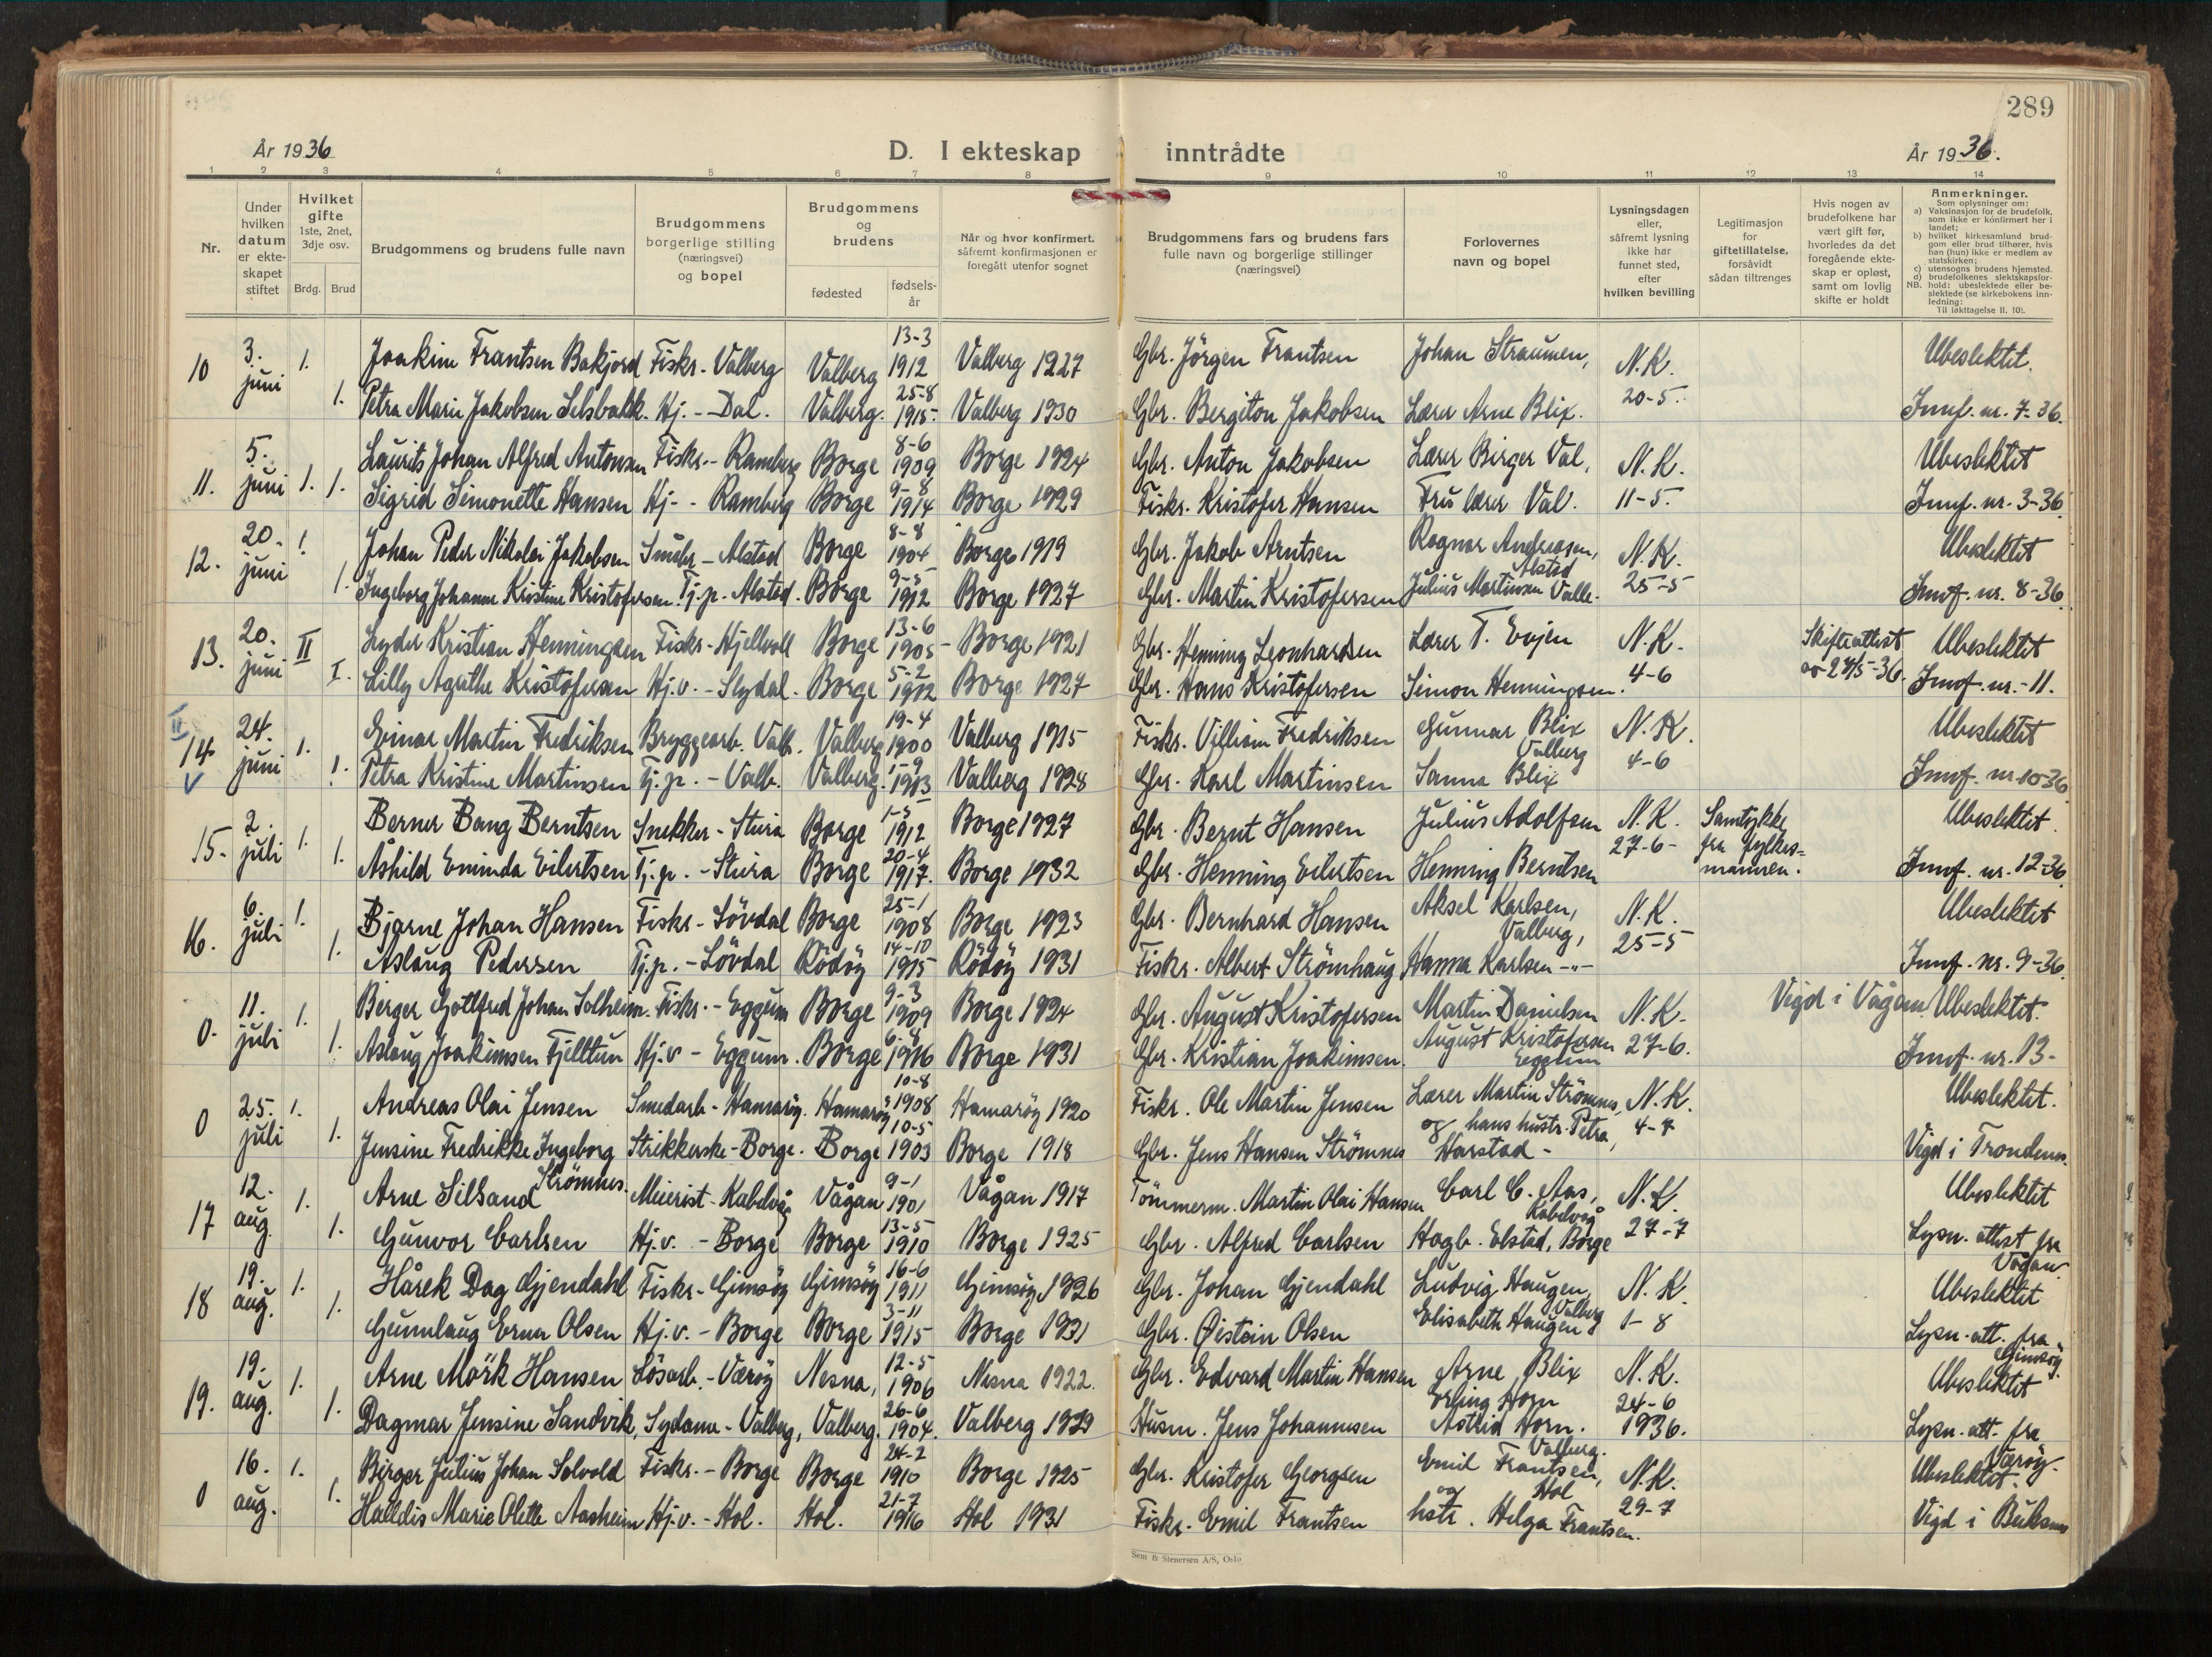 289
År 1936
D. I ekteskap inntrådte
År 1936.
1 2 3 4 5 6 7 8 9 10 11 12 13 14
Nr.
Under hvilken datum er ekte-skapet stiftet
Hvilket gifte 1ste, 2net, 3dje osv. Brdg. Brud
Brudgommens og brudens fulle navn
Brudgommens borgerlige stilling (næringsvei) og bopel
Brudgommens og brudens fødested fødsels-år
Når og hvor konfirmert, såfremt konfirmasjonen er foregått utenfor sognet
Brudgommens fars og brudens fars fulle navn og borgerlige stillinger (næringsvei)
Forlovernes navn og bopel
Lysningsdagen eller, såfremt lysning ikke har funnet sted, efter hvilken bevilling
Legitimasjon for giftetillatelse, forsåvidt sådan tiltrenges
Hvis nogen av brudefolkene har vært gift før, hvorledes da det foregående ekte-skap er opløst, samt om lovlig skifte er holdt
Anmerkninger.
Som oplysninger om:
a) Vaksinasjon for de brudefolk, som ikke er konfirmert her i landet;
b) hvilket kirkesamfund brud-gom eller brud tilhører, hvis han (hun) ikke er medlem av statskirken;
c) utensogns brudens hjemsted.
d) brudefolkenes slektskapsfor-
NB. hold: ubeslektede eller be-slektede (se kirkebokens inn-ledning:
Til iakttagelse II. 10).
10 3. juni 1. Joakim Frantsen Bakjord Fiskr. - Valberg Valberg 13-3 1912 Valberg 1927 Gbr. Jörgen Frantsen Johan Straumen, N.K. Ubeslektet.
1. Petra Marie Jakobsen Selsbakk. Hj. - Dal. Valberg. 25-8 1915 Valberg 1930 Gbr. Bergiton Jakobsen Lærer Arne Blix. 20-5. Innf. nr. 7-36.
11. 5. juni 1. 1. Laurits Johan Alfred Antonsen Fiskr. - Ramberg Borge 8-6 1909 Borge 1924 Gbr. Anton Jakobsen Lærer Birger Val, N.K. Ubeslektet
Sigrid Simonette Hansen Hj - - Ramberg Borge 9-8 1914 Borge 1929 Fiskr. Kristofer Hansen Fru lærer Val. 11-5. Innf. nr. 3-36.
12. 20. juni 1. Johan Peder Nikolai Jakobsen Småbr - Alstad Borge 8-8 1904 Borge 1919 Gbr. Jakob Arntsen Ragnar Andreasen, Alstad N.K. Ubeslektet
1. Ingeborg Johanne Kristine Kristofersen. Tj.p. Alstad. Borge 9-5 1912 Borge 1927 Gbr. Martin Kristofersen Julius Martinsen Valle. 25-5 Innf. nr. 8-36.
13. 20. juni II Lyder Kristian Henningsen Fiskr - Hjellvoll Borge 13-6 1905 - Borge 1921 Gbr. Henning Leonhardsen Lærer T. Evjen N.K. Skifteattest Ubeslektet
I. Lilly Agathe Kristofersen Hj.v. - Slydal. Borge 5-2 1912 Borge 1927 Gbr. Hans Kristofersen Simon Henningsen. 4-6 av 27/5-36. Innf. nr. - 11.
II
14 24. juni 1. Einar Martin Fredriksen Bryggearb. Valb. Valberg 19-4 1900 Valberg 1915 Fiskr. Villiam Fredriksen Gunnar Blix Valberg N.K. Ubeslektet
V 1. Petra Kristine Martinsen Tj.p. - Valb. Valberg. 1-9 1913 Valberg 1928 Gbr. Karl Martinsen Sanna Blix 4-6 Innf. nr 10-36
15. 2. juli 1. Berner Bang Berntsen Snekker - Stura Borge 1-5 1912 Borge 1927 Gbr. Bernt Hansen Julius Adolfsen N.K. Samtykke Ubeslektet.
1. Åshild Eminda Eilertsen Tj.p. - Stura Borge 20-4 1917. Borge 1932 Gbr. Henning Eilertsen Henning Berntsen 27-6 - fra fylkes=mannen. Innf. nr. 12-36.
16. 6. juli 1. Bjarne Johan Hansen Fiskr - Lövdal Borge 25-1 1908 Borge 1923 Gbr. Bernhard Hansen Aksel Karlsen, Valberg, N.K. Ubeslektet
1. Aslaug Pedersen Tj.p. - Lövdal Rödöy 14-10 1915 Rödöy 1931 Fiskr. Albert Strömhaug Hanna Karlsen -"- 25-5 Innf. nr. 9-36.
0. 11. juli 1. Berger Gottfred Johan Solheim. Fiskr. - Eggum Borge 9-3 1909 Borge 1924 Gbr. August Kristofersen Martin Danielsen N.K. Vigd i Vågan Ubeslektet.
1. Aslaug Joakimsen Fjelltun Hj.v - Eggum. Borge 6-4 1916 Borge 1931 Gbr. Kristian Joakimsen. August Kristofersen Eggum 27-6. Innf. nr. 13 -
0 25. juli 1. Andreas Olai Jensen Smedarb - Hamaröy. Hamaröy 10-8 1908 Hamaröy 1920 Fiskr. Ole Martin Jensen Lærer Martin Strömnes, N.K. Ubeslektet.
1. Jensine Fredrikke Ingeborg Strömnes. Strikkerske - Borge. Borge 10-5 1903 Borge 1918 Gbr. Jens Hansen Strömnes og hans hustr. Petra, Harstad - 4-7 Vigd i Trondenes.
17 12. aug 1. Arne Silsand Meierist - Kabelvåg Vågan 9-1 1901 Vågan 1917 Tömmerm. Martin Olai Hansen Carl C. Aas, Kabelvåg N.K. Ubeslektet
1. Gunvor Carlsen Hj.v. - Borge Borge 13-5 1910 Borge 1925 Gbr. Alfred Carlsen Hagb. Elstad, Borge 27-7 Lysn. attest fra Vågan.
18 19. aug. 1. Hårek Dag Gjendahl Fiskr - Gimsöy Gimsöy 16-6 1911 Gimsöy 1926 Gbr. Johan Gjendahl Ludvig Haugen, Valberg N.K. Ubeslektet
1. Gunnlaug Erna Olsen Hj.v. - Borge Borge 3-11 1915 Borge 1931 Gbr. Øistein Olsen Elisabeth Haugen 1-8 Lysn. att. fra Gimsöy.
19. 19. aug. 1. Arne Mörk Hansen Lösarb. - Væröy Nesna, 12-5 1906 Nesna 1922. Gbr. Edvard Martin Hansen Arne Blix N.K. Ubeslektet
1. Dagmar Jensine Sandvik, Sydame - Valberg, Valberg. 26-6 1904. Valberg 1919 Husm. Jens Johannesen Erling Horn Astrid Horn. Valberg. 24-6 1936. Lysn. att. fra Væröy.
0 16. aug. 1. Birger Julius Johan Solvold Fiskr. - Borge Borge 24-2 1910 Borge 1925 Gbr. Kristofer Georgsen Emil Frantsen, Hol N.K. Ubeslektet.
1. Halldis Marie Olette Aasheim Hj.v. - Hol. Hol. 21-7 1916 Hol 1931 Fiskr. Emil Frantsen og hstr. Helga Frantsen. 29-7 Vigd i Buksnes
Sem & Stenersen A/S, Oslo.